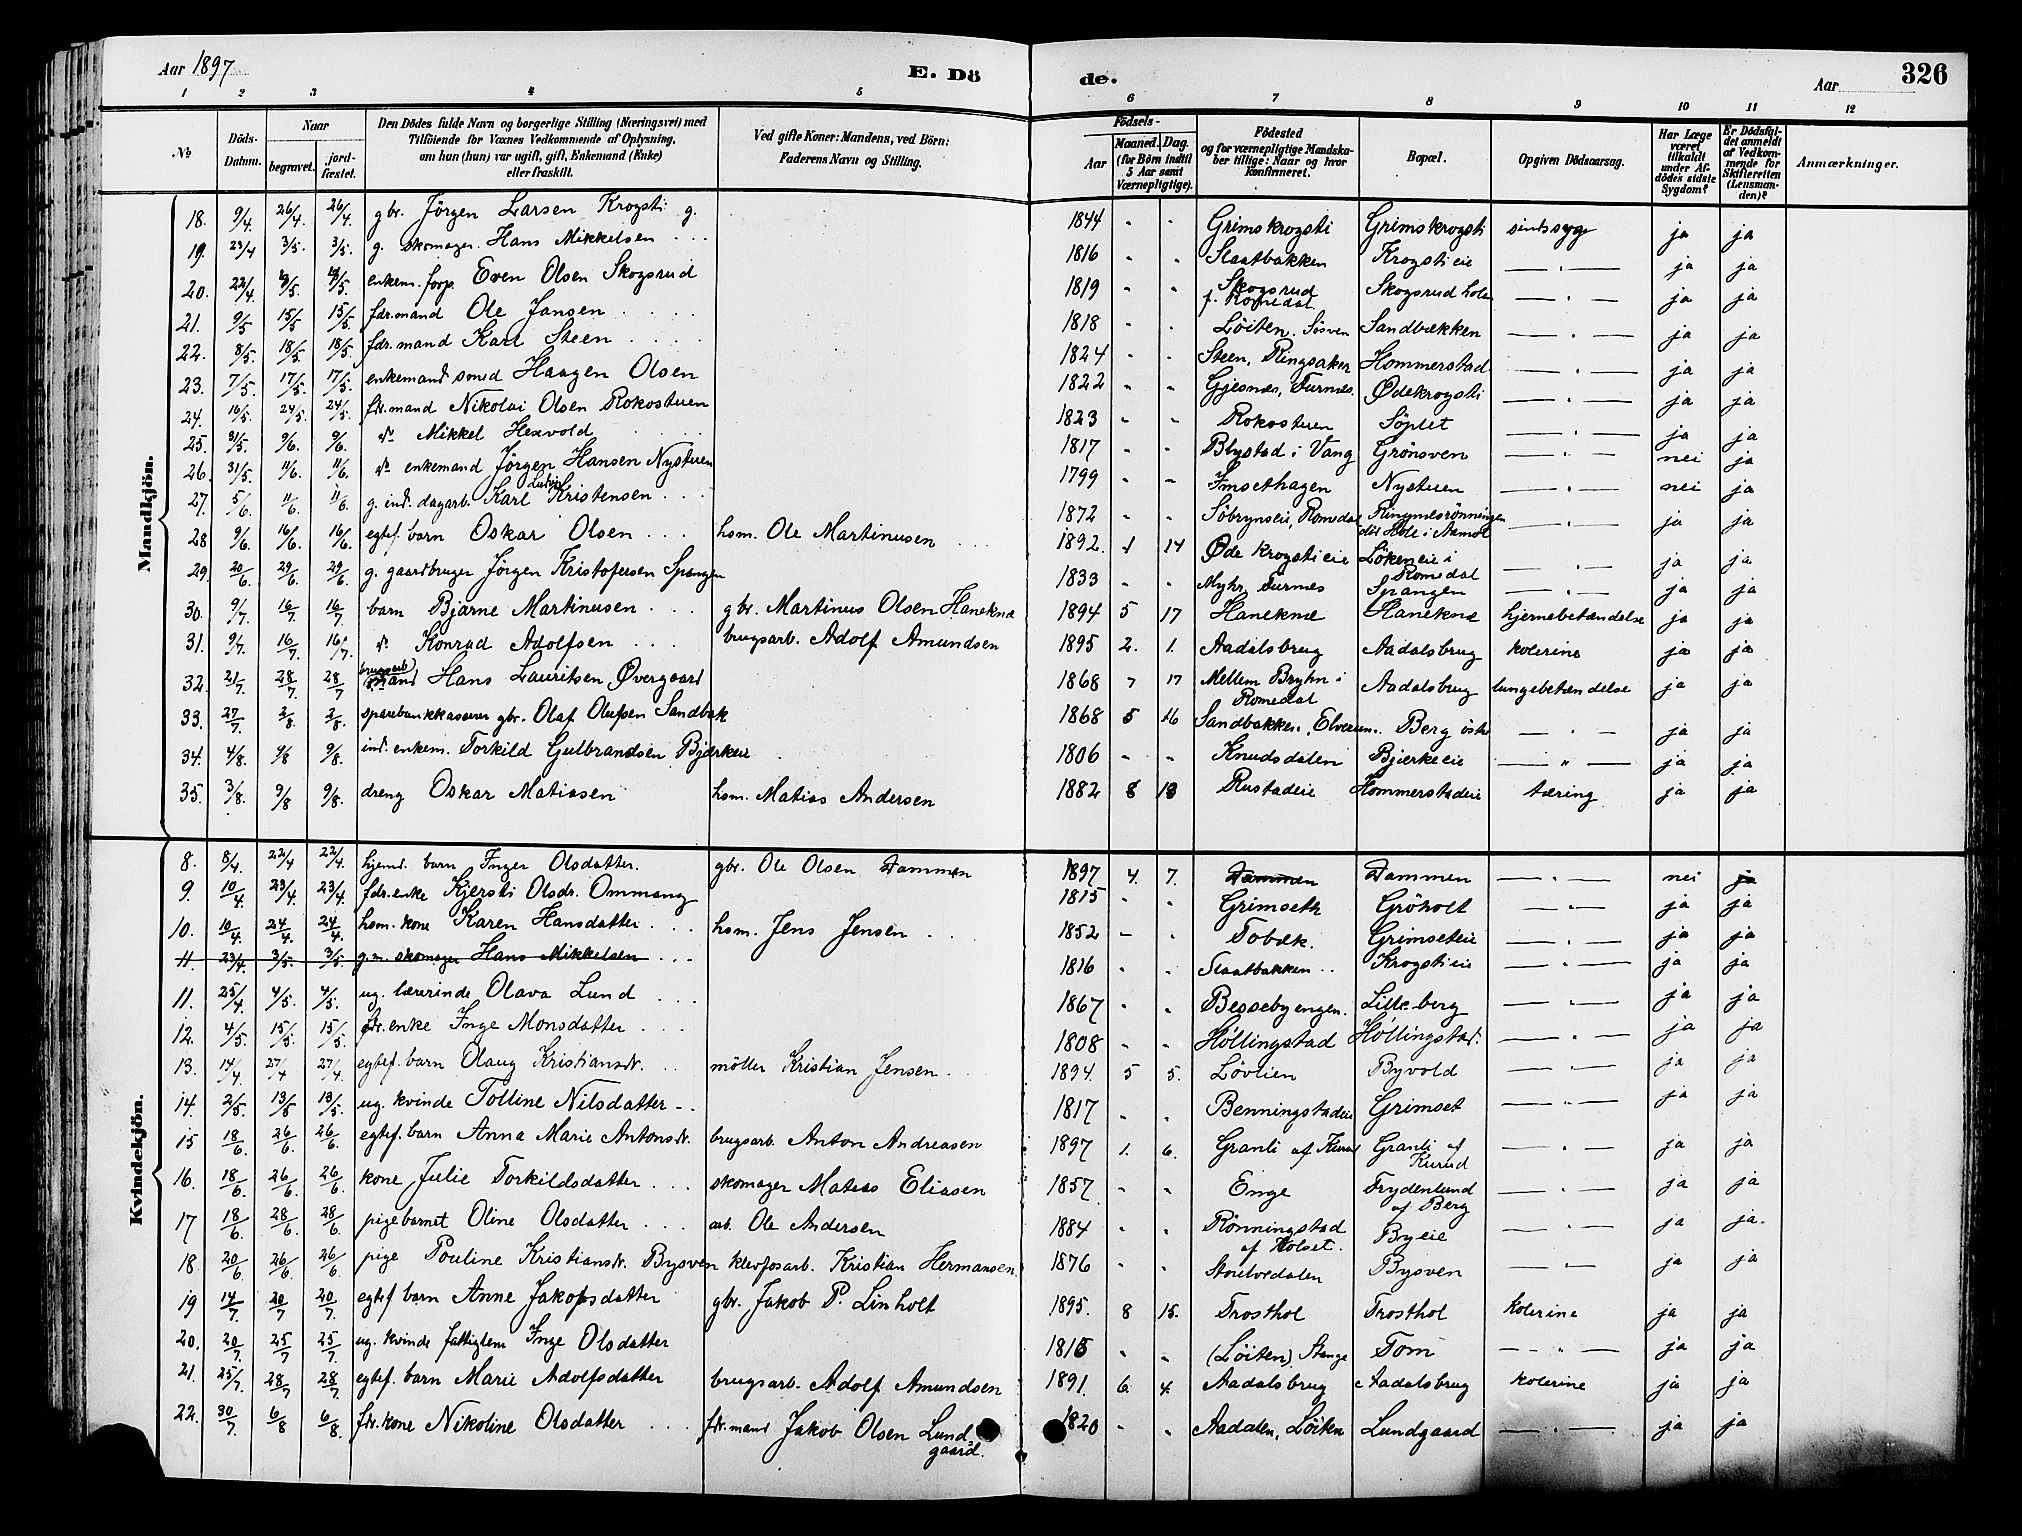 Aar 1897
E. Dö
de.
Aar
326
1 2 3 4 5 6 7 8 9 10 11 12
No
Döds-Datum.
Naar
begravet.
jord-fæstet.
Den Dödes fulde Navn og borgerlige Stilling (Næringsvei) med
Tilföiende for Voxnes Vedkommende af Oplysning,
om han (hun) var ugift, gift, Enkemand (Enke)
eller fraskilt.
Ved gifte Koner: Mandens, ved Börn:
Faderens Navn og Stilling.
Födsels-
Aar
Maaned. Dag.
(for Börn indtil
5 Aar samt
Værnepligtige).
Födested
og for værnepligtige Mandska-
ber tillige: Naar og hvor
konfirmeret.
Bopæl.
Opgiven Dödsaarsag.
Har Læge
været
tilkaldt
under Af-
dödes sidste
Sygdom?
Er Dödsfal-
det anmeldt
af Vedkom-
mende for
Skifteretten
(Lensman-
den)?
Anmærkninger.
Mandkjön.
18. 9/4. 26/4. 26/4 gbr. Jörgen Larsen Krogsti g. 1844 - - Grimskrogsti Grimskrogsti sindssyge ja ja
19. 23/4 3/5. 3/5. g. skomager Hans Mikkelsen 1816 - - Slaatbakken Krogstieie — " — ja ja
20. 22/4 /5. /5. enkem. forp. Even Olsen Skogsrud 1819 - - Skogsrud f. Romedal Skogsrud — " — ja ja
21. 9/5 15/5 15/5. fdr. mand Ole Jansen 1818 - - Löiten, Sösven Sandbækken — " — ja ja
22. 8/5. 18/5. 18/5. fdr. mand Karl Steen 1824 - - Steen, Ringsaker Hommerstad — " — ja ja
23. 7/5. 17/5. 17/5. enkemand smed Haagen Olsen 1822 - - Gjesnæs, Furnæs. Ødekrogsti — " — ja ja
24. 16/5. 24/5. 24/5. fdr. mand Nikolai Olsen Rokosteuen 1823 - - Rokosteuen Söplet — " — ja ja
25. 31/5. 9/6. 9/6. do Mikkel Hexvold 1817 - - Blystad i Vang Grönsven — " — nei ja
26. 31/5. 11/6. 11/6. do enkemand Jörgen Hansen Nystuen 1799 - - Imsethagen Nystuen — " — nei ja
27. 5/6. 11/6. 11/6 g. ind. dagarb. Karl Ludvig Kristensen 1872 - - Söbrynseie, Romedal — " — ja ja
28 9/6. 16/6. 16/6. egtef. barn Oskar Olsen hsm. Ole Martinusen 1892. 1 14 Øde Krogstieie Lökeneie i Romedal — " — ja ja
29. 20/6. 29/6. 29/6. g. gaardbruger Jörgen Kristofersen Spangen 1833 - - Myhr, Furnes Spangen ja ja
30. 9/7. 16/7. 16/7 barn Bjarne Martinusen gbr. Martinus Olsen Haneknæ 1894 5 17 Haneknæ Haneknæ hjernebetændelse ja ja
31. 9/7. 16/7. 16/7. do Konrad Adolfsen brugsarb. Adolf Amundsen 1895 2. 1. Aadalsbrug Aadalsbrug kolerine ja ja
32. 21/7. 28/7. 28/7 brugsarb Hans Lauritsen Øvergaard 1868 7 17 Mellem Bryhn i Romedal Aadalsbrug lungebetændelse ja ja
33. 27/7. 2/8. 2/8. sparebankkasserer gbr. Olaf Olufsen Sandbak 1868 5 16 Sandbakken, Elverum. Berg östre — " — ja ja
34. 4/8. 9/8 9/8. ind. enkem. Torkild Gulbrandsen Bjerkeie 1806 - - Knudsdalen Bjerkeeie — " — ja ja
35. 3/8. 9/8 9/8. dreng Oskar Matiasen hsm. Matias Andersen 1882 8 13 Rustadeie Hommerstadeie tæring ja ja
Kvindekjön.
8. 8/4. 22/4 22/4. hjemd. barn Inger Olsdatter. gbr. Ole Olsen Dammen 1897 4. 7. Dammen Dammen — " — nei ja
9. 10/4 23/4. 23/4. fdr. enke Kjersti Olsdr. Ommang 1815 - - Grimseth Gröholt — " — ja ja
10. 10/4. 24/4. 24/4. hsm. kone Karen Hansdatter hsm. Jens Jensen 1852 - - Tobæk. Grimseteie — " — ja ja
11. 23/4. 3/5. 3/5. g.m. skomager Hans Mikkelsen 1816 - - Slaatbakken Krogstieie — " — ja ja
11. 25/4 4/5. 4/5. ug. lærerinde Olava Lund 1867 - - Bessebyengen. Lilleberg — " — ja ja
12. 4/5 15/5. 15/5. fdr. enke Inge Monsdatter 1808 - - Höllingstad Höllingstad. — " — ja ja
13. 14/4. 27/4 27/4. egtef. barn Olaug Kristiansdr. möller Kristian Jensen 1894. 5 5. Lövlien Byvold — " — ja ja
14. 2/5. 13/5 13/5. ug. kvinde Tolline Nilsdatter 1817 - - Benningstadeie Grimset — " — ja ja
15 18/6. 26/6 26/6. egtef. barn Anna Marie Antonsdr. brugsarb. Anton Andreasen 1897 1. 6. Granli af Kurud Granli af Kurud — " — ja ja
16. 18/6. 26/6. 26/6. kone Julie Torkildsdatter skomager Matias Eliasen 1857 - - Enge Frydenlund af Berg — " — ja ja
17 18/6. 28/6 28/6. pigebarnet Oline Olsdatter arb. Ole Andersen 1884 - - Rönningstad af Holset. Byeie — " — ja ja.
18 20/6 26/6 26/6. pige Pouline Kristiansdr. Bysven klevfosarb. Kristian Hermansen 1876 - - Bysven — " — ja ja
19 14/7 20/7 20/7. egtef barn Anne Jakobsdatter gbr. Jakob P. Linholt 1895. 8 15. Trosthol Trosthol kolerine ja ja
20. 20/7. 25/7 25/7. ug. kvinde fattiglem Inge Olsdatter 1815 - - (Löiten) Stange Tom — " — ja ja
21. 25/7. 28/7 28/7. egtef. barn Marie Adolfsdatter brugsarb. Adolf Amundsen 1891 6. 4. Aadalsbrug Aadalsbrug kolerine ja ja
22. 30/7 6/8 6/8. fdr. kone Nikoline Olsdatter fdr. mand Jakob Olsen Lundgaard. 1820 - - Aadalen, Löiten Lundgaard — " — ja ja